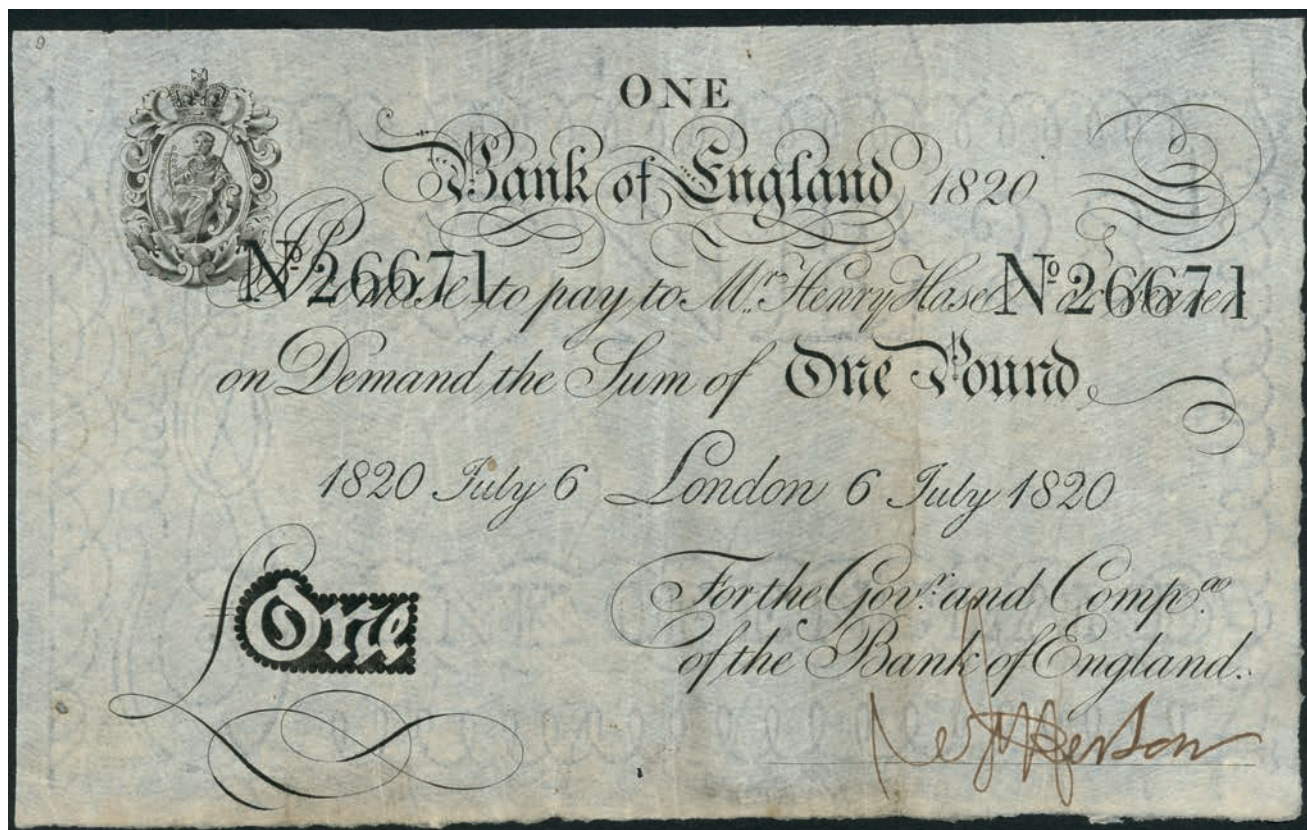 9
ONE
Bank of England 1820
Nº 26671 Nº 26671
I Promise to pay to Mr. Henry Hase or bearer
on Demand the Sum of One Pound
1820 July 6 London 6 July 1820
£ One
For the Govr. and Compa.
of the Bank of England.